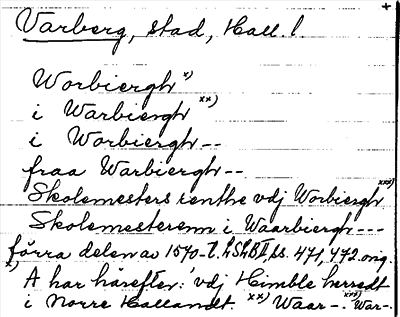 Varberg, stad, Hall. l
Worbiergh x)
i Warbiergh xx)
i Worbiergh --
fraa Warbiergh --
Skolemesters renthe vdj Worbiergh xxx)
Skolemesterenn i Waarbiergh ---
förra delen av 1540-t. LSHBII, ss. 471, 472 orig.
x) A har härefter: vdj Himble herredt
i Nörre Hallandt. xx) Waar-. xxx) War-.